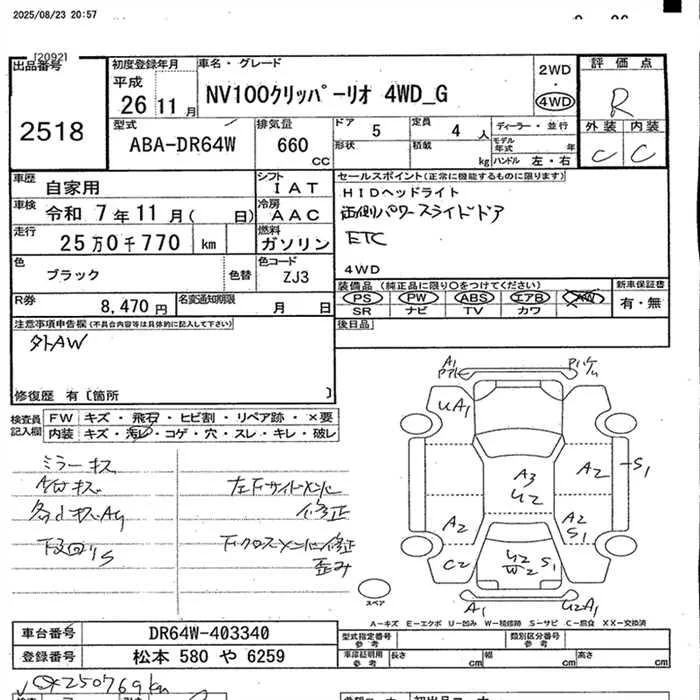 2025/08/23 20:57
[2092]
出品番号 初度登録年月 車名・グレード 評価点
平成 26年11月 NV100クリッパーリオ 4WD_G 2WD ・ 4WD R
2518
型式 排気量 ドア 5 定員 4人 ディーラー・並行 外装 内装
ABA-DR64W 660 CC 形状 積載 kg モデル年式 年 ハンドル 左・右 C C
車歴 自家用 シフト IAT セールスポイント(正常に機能するものに限ります)
HIDヘッドライト
車検 令和 7年11月( 日) 冷房 AAC 両側パワースライドドア
走行 25万0千770 km 燃料 ガソリン ETC
色 ブラック 色替 色コード ZJ3 4WD
装備品(純正品に限り○をつけてください) 新車保証書
PS PW ABS エアB AW 有・無
SR ナビ TV カワ
R券 8,470円 名変通知期限 月 日
注意事項申告欄(不具合内容等は具体的に記入して下さい) 後日品
外AW
修復歴 有〔箇所 〕
検査員記入欄 FW キズ・飛石・ヒビ割・リペア跡・×要
内装 キズ・汚レ・コゲ・穴・スレ・キレ・破レ
ミラーキズ
左下サイドメンバ
修正
下回りS 下クロスメンバー修正
歪み
A1
UA1
A2 S1
A3
U2
A2 A2
S1
C2 U2 S1
W2
A1 U2A1
スペア
A-キズ E-エクボ U-凹み W-補修跡 S-サビ C-腐食 XX-交換済
車台番号 DR64W-403340 型式指定番号 参考 類別区分番号 参考
登録番号 松本 580 や 6259 車庫証明用 参考 長さ cm 幅 cm 高さ cm
250769km